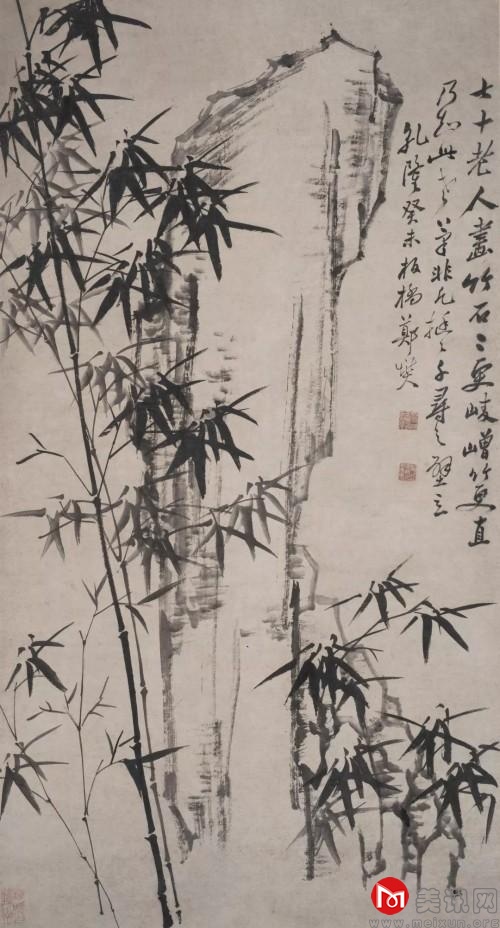 七十老人畫竹石石更崚嶒竹更直
乃知此老筆非凡挺挺千尋之壁立
乾隆癸未板橋鄭燮
美讯网
www.meixun.org